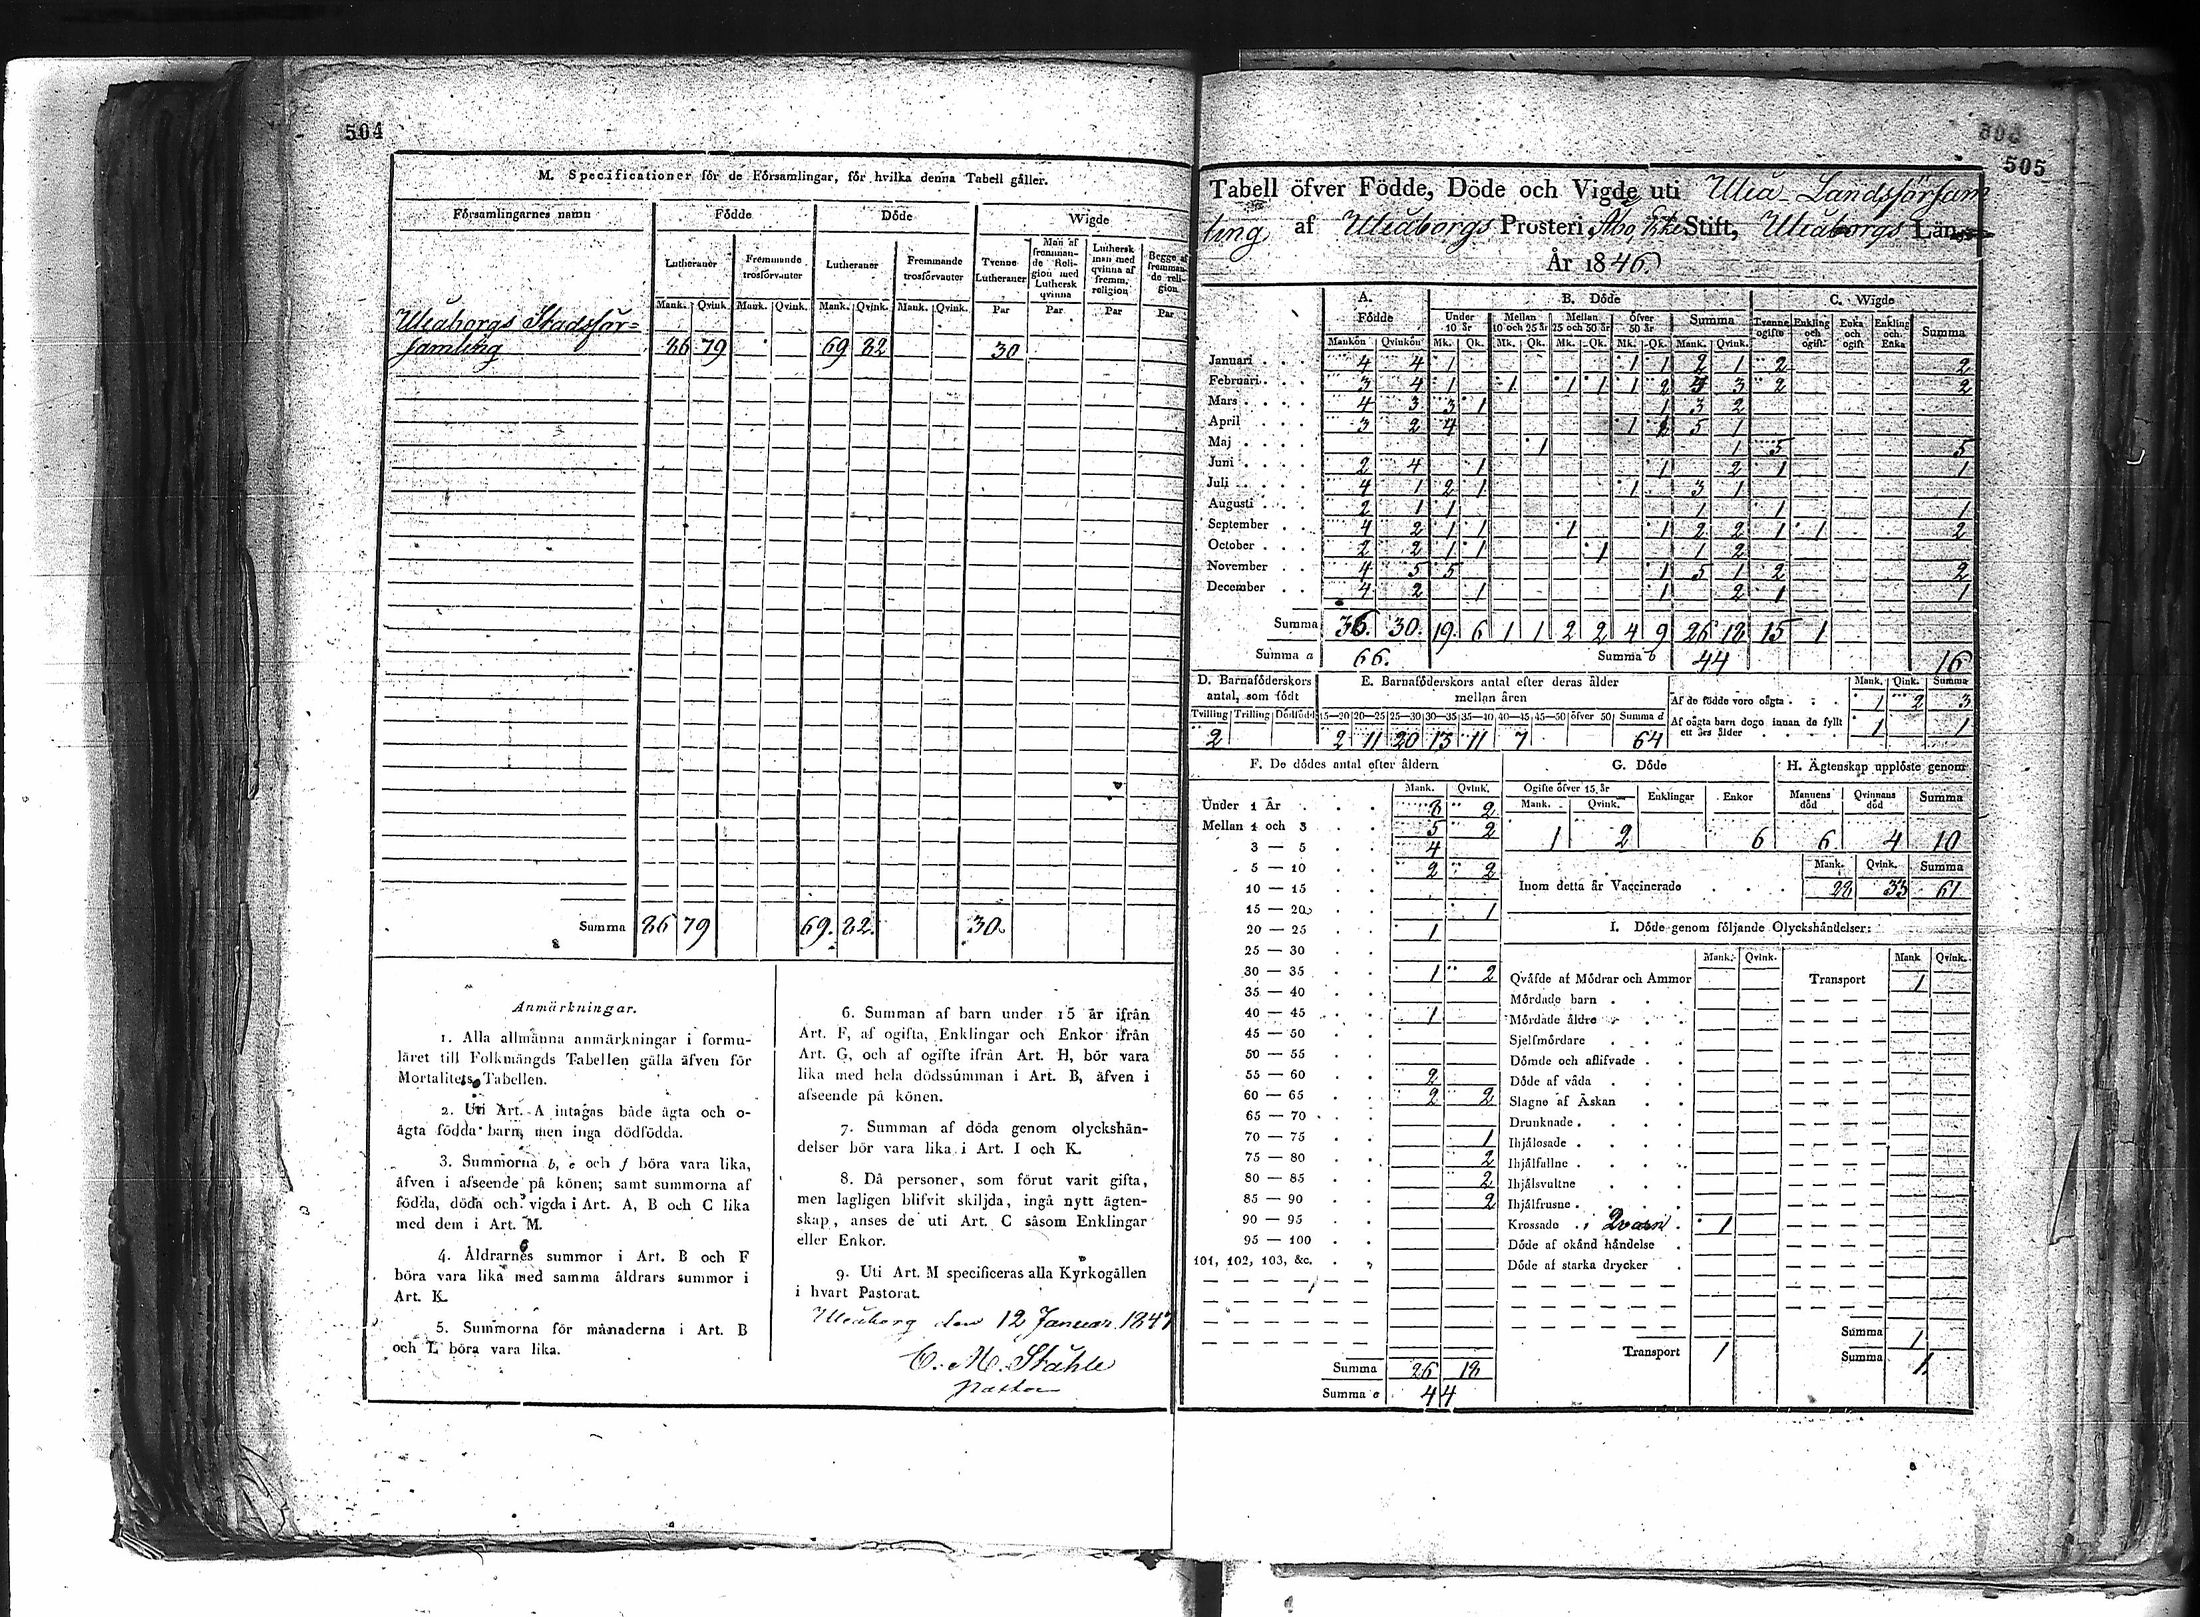 504
M. Specificationer för de Församlingar, för hvilka denna Tabell gäller.
Församlingarnes namn | Födde | Döde | Wigde
Lutheraner | Fremmande trosförvanter | Lutheraner | Fremmande trosförvanter | Tvenne Lutheraner | Man af fremmande Religion med Luthersk qvinna | Luthersk man med qvinna af fremm. religion | Begge af fremmande religion
Mank. Qvink. Mank. Qvink. Mank. Qvink. Mank. Qvink. Par Par Par Par
Uleåborgs Stadsför=
samling 86 79 69 82 30
Summa 86 79 69. 82. 30.
Anmärkningar.
1. Alla allmänna anmärkningar i formu-
läret till Folkmängds Tabellen gälla äfven för
Mortalitets Tabellen.
2. Uti Art. A intagas både ägta och o-
ägta födda barn, men inga dödfödda.
3. Summorna b, e och f böra vara lika,
äfven i afseende på könen; samt summorna af
födda, döda och vigda i Art. A, B och C lika
med dem i Art. M.
4. Åldrarnes summor i Art. B och F
böra vara lika med samma åldrars summor i
Art. K.
5. Summorna för månaderna i Art. B
och L böra vara lika.
6. Summan af barn under 15 år ifrån
Art. F, af ogifta, Enklingar och Enkor ifrån
Art. G, och af ogifte ifrån Art. H, bör vara
lika med hela dödssumman i Art. B, äfven i
afseende på könen.
7. Summan af döda genom olyckshän-
delser bör vara lika i Art. I och K.
8. Då personer, som förut varit gifta,
men lagligen blifvit skiljda, ingå nytt ägten-
skap, anses de uti Art. C såsom Enklingar
eller Enkor.
9. Uti Art. M specificeras alla Kyrkogällen
i hvart Pastorat.
Uleåborg den 12 Januar. 1847
C. M. Ståhle
Pastor
505
Tabell öfver Födde, Döde och Vigde uti Uleå Landsförsam
ling af Uleåborgs Prosteri, Åbo Erke Stift, Uleåborgs Län
År 1846.
A. Födde | B. Döde | C. Wigde
Under 10 år | Mellan 10 och 25 år | Mellan 25 och 50 år | Öfver 50 år | Summa | Tvenne ogifte | Enkling och ogift | Enka och ogift | Enkling och Enka | Summa
Mankön Qvinkön Mk. Qk. Mk. Qk. Mk. Qk. Mk. Qk. Mank. Qvink.
Januari 4 4 1 1 1 2 1 2 2
Februari 3 4 1 1 1 1 1 2 4 3 2 2
Mars 4 3 3 1 1 3 2
April 3 2 4 1 1 5 1
Maj 1 1 5 5
Juni 2 4 1 1 2 1 1
Juli 4 1 2 1 1 3 1
Augusti 2 1 1 1 1 1
September 4 2 1 1 1 1 2 2 1 1 2
October 2 2 1 1 1 1 2
November 4 5 5 1 5 1 2 2
December 4 2 1 1 2 1 1
Summa 36. 30. 19. 6 1 1 2 2 4 9 26 18 15 1
Summa a 66. Summa b 44 16
D. Barnaföderskors antal, som födt
Tvilling Trilling Dödfödd
2
E. Barnaföderskors antal efter deras ålder mellan åren
15—20 20—25 25—30 30—35 35—40 40—45 45—50 öfver 50 Summa d
2 11 20 13 11 7 64
Mank. Qink. Summa
Af de födde voro oägta 1 2 3
Af oägta barn dogo innan de fyllt
ett års ålder 1 1
F. De dödes antal efter åldern
Mank. Qvink.
Under 1 År 8 2
Mellan 1 och 3 5 2
3 — 5 4
5 — 10 2 2
10 — 15
15 — 20 1
20 — 25 1
25 — 30
30 — 35 1 2
35 — 40
40 — 45 1
45 — 50
50 — 55
55 — 60 2
60 — 65 2 2
65 — 70
70 — 75 1
75 — 80 2
80 — 85 2
85 — 90 2
90 — 95
95 — 100
101, 102, 103, &c.
Summa 26 18
Summa e 44
G. Döde
Ogifte öfver 15 år | Enklingar | Enkor
Mank. Qvink.
1 2 6
H. Ägtenskap upplöste genom
Mannens död | Qvinnans död | Summa
6 4 10
Mank. Qvink. Summa
Inom detta år Vaccinerade 28 33 61
I. Döde genom följande Olyckshändelser:
Mank. Qvink. Mank. Qvink.
Qväfde af Mödrar och Ammor Transport 1
Mördade barn
Mördade äldre
Sjelfmördare
Dömde och aflifvade
Döde af våda
Slagne af Åskan
Drunknade
Ihjälosade
Ihjälfallne
Ihjälsvultne
Ihjälfrusne
Krossade i Qvarn 1
Döde af okänd händelse
Döde af starka drycker
Summa 1
Transport 1 Summa 1